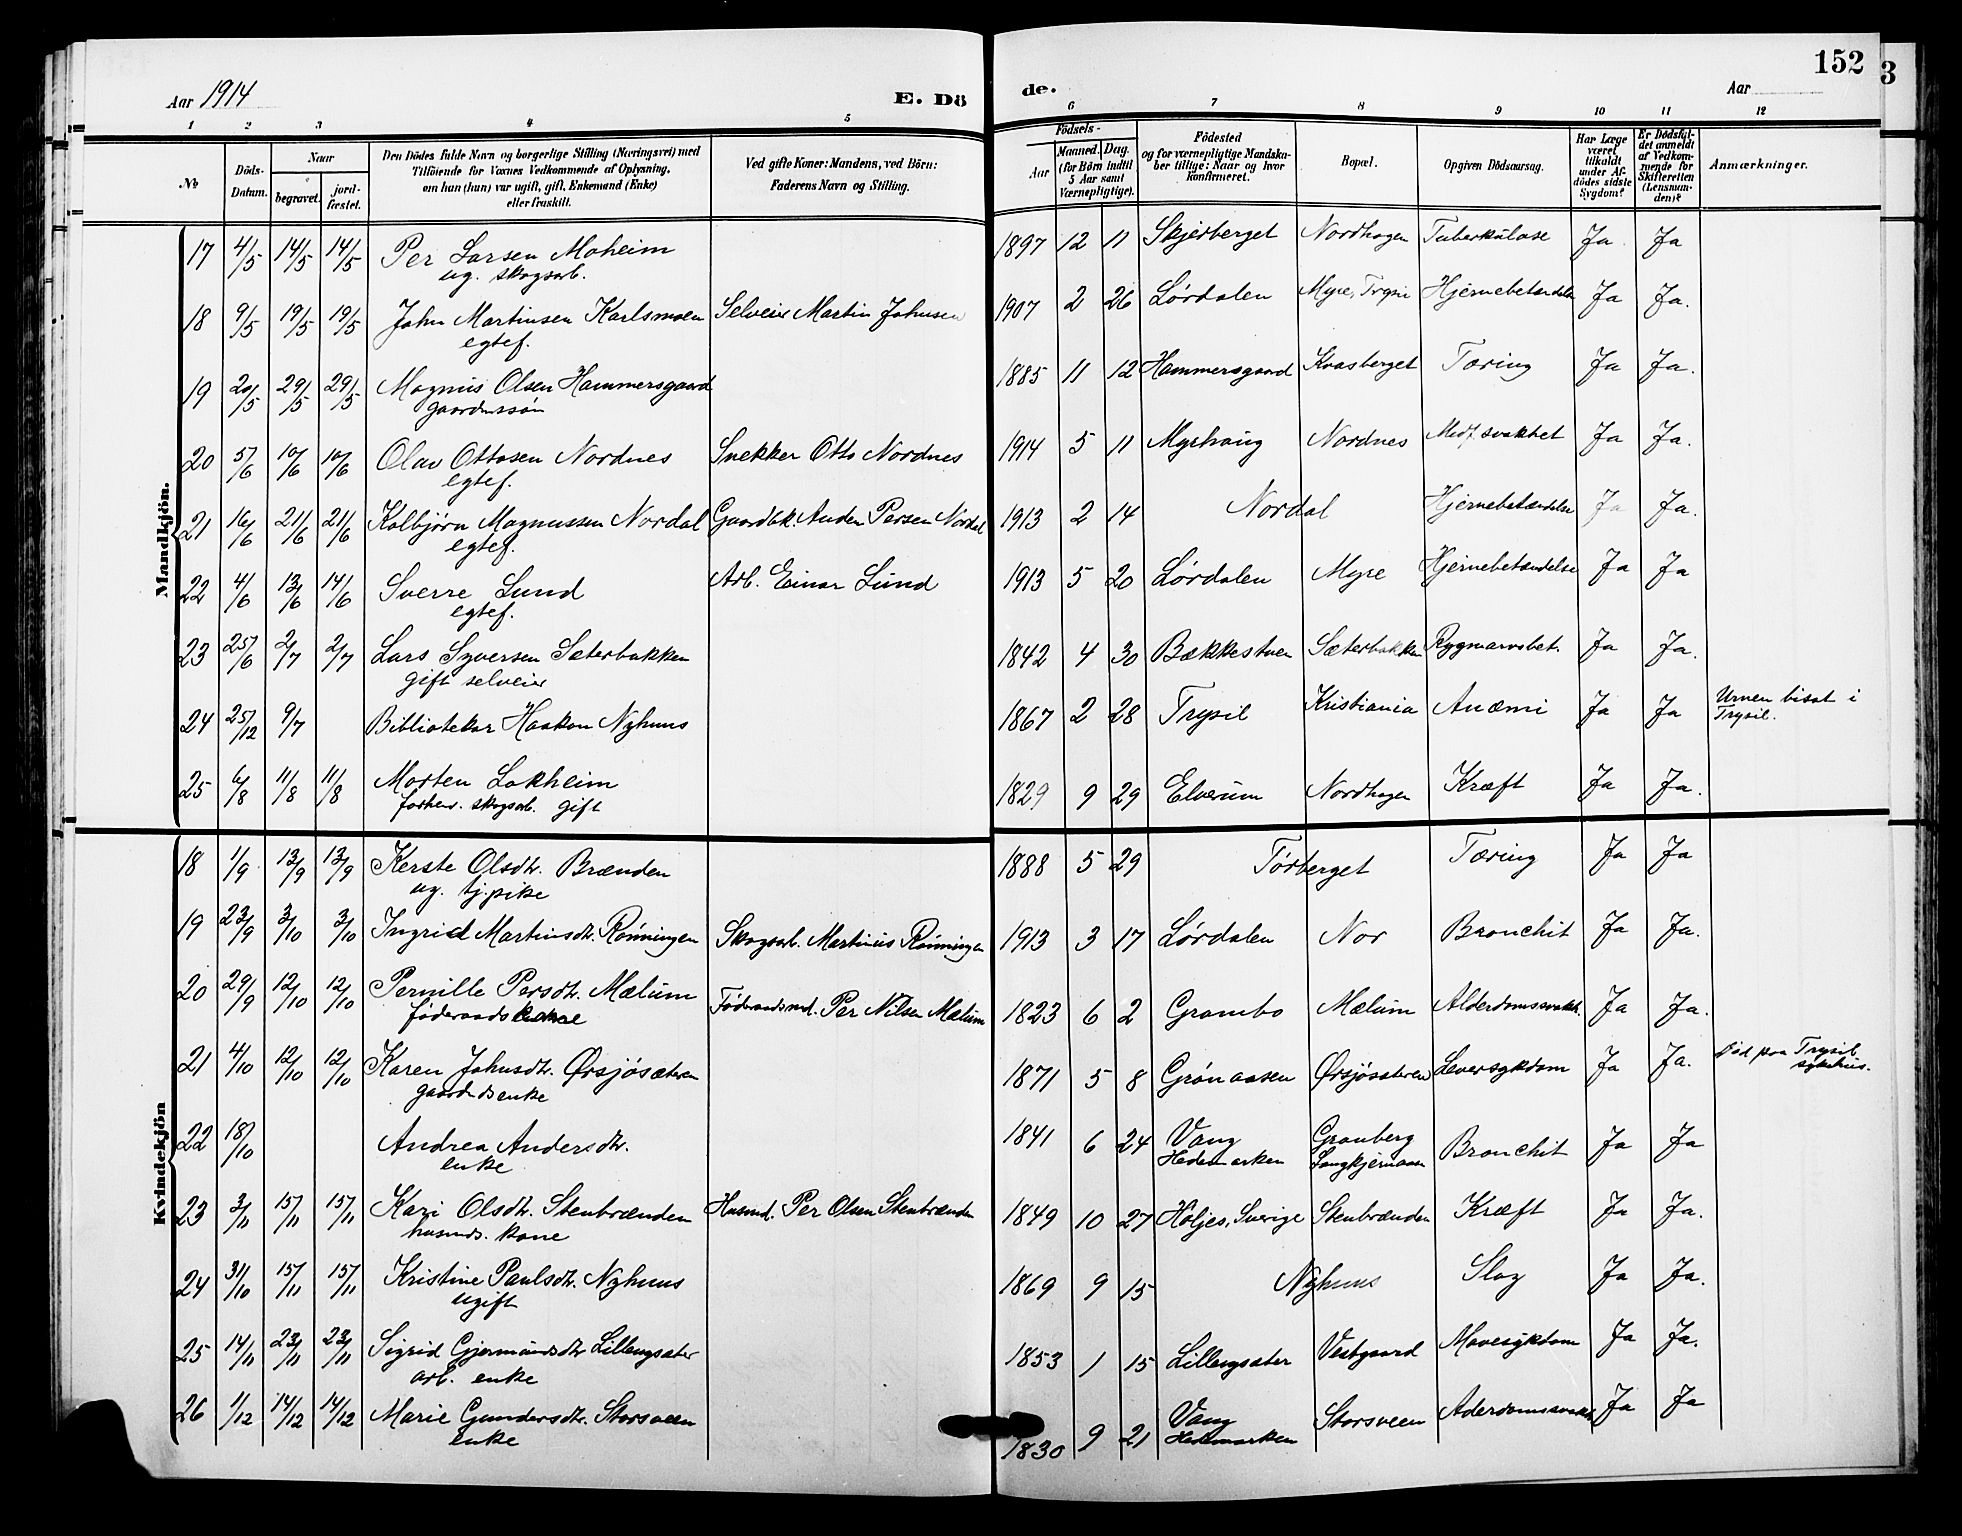 152
3
Aar 1914
E. Dö
de.
Aar
1 2 3 4 5 6 7 8 9 10 11 12
No
Döds-Datum.
Naar
begravet.
jord-fæstet.
Den Dödes fulde Navn og borgerlige Stilling (Næringsvei) med
Tilföiende for Voxnes Vedkommende af Oplysning,
om han (hun) var ugift, gift, Enkemand (Enke)
eller fraskilt.
Ved gifte Koner: Mandens, ved Börn:
Faderens Navn og Stilling.
Födsels-
Aar
Maaned. Dag.
(for Börn indtil
5 Aar samt
Værnepligtige).
Födested
og for værnepligtige Mandska-
ber tillige: Naar og hvor
konfirmeret.
Bopæl.
Opgiven Dödsaarsag.
Har Læge
været
tilkaldt
under Af-
dödes sidste
Sygdom?
Er Dödsfal-
det anmeldt
af Vedkom-
mende for
Skifteretten
(Lensman-
den)?
Anmærkninger.
Mandkjön.
17 4/5 14/5 14/5 Per Larsen Moheim 1897 12 11 Skjerberget Nordhagen Tuberkulose Ja Ja
ug. skogsarb.
18 9/5 19/5 19/5 John Martinsen Karlsmoen Selveier Martin Johnsen 1907 2 26 Lørdalen Myre, Trysil Hjernebetændelse Ja Ja.
egtef.
19 20/5 29/5 29/5 Magnus Olsen Hammersgaard 1885 11 12 Hammersgaard Kvasberget Tæring Ja Ja.
gaardmssøn
20 5/6 10/6 10/6 Olav Ottosen Nordnes Snekker Otto Nordnes 1914 5 11 Myrhaug Nordnes Medf. svakhet Ja Ja.
egtef.
21 16/6 21/6 21/6 Kolbjørn Magnussen Nordal Gaardbk. Anden Persen Nordal 1913 2 14 Nordal Hjernebetændelse Ja Ja.
egtef.
22 4/6 13/6 14/6 Sverre Lund Arb. Einar Lund 1913 5 20 Lørdalen Myre Hjernebetændelse Ja Ja
egtef.
23 25/6 2/7 2/7 Lars Syversen Sæterbakken 1842 4 30 Bækkestuen Sæterbakken Rygmarvsbet. Ja Ja.
gift selveier
24 25/12 9/7 Bibliotekar Haakon Nyhuus 1867 2 28 Trysil Kristiania Anæmi Ja Ja Urnen bisat i
Trysil.
25 6/8 11/8 11/8 Morten Lokheim 1829 9 29 Elverum Nordhagen Kræft Ja Ja.
forhenv. skogsarb. gift
Kvindekjön
18 1/9 13/9 13/9 Kerste Olsdtr. Brænden 1888 5 29 Tørberget Tæring Ja Ja
ug. tj.pike
19 23/9 3/10 3/10 Ingrid Martinsdtr. Rønningen Skogsarb. Martinus Rønningen 1913 3 17 Lørdalen Nor Bronchit Ja Ja.
20 29/9 12/10 12/10 Pernille Persdtr. Mælum Føderaadsmd. Per Nilsen Mælum 1823 6 2 Grambo Mælum Alderdomssvakh. Ja Ja.
føderaads
21 4/10 12/10 12/10 Karen Johnsdtr. Ørsjøsæteren 1871 5 8 Grønaasen Ørsjøsæteren Leversykdom Ja Ja. Død paa Trysil
sykehus.
gaardmdsenke
22 18/10 Andrea Andersdtr. 1841 6 24 Vang Granberg Bronchit Ja Ja
enke Hedemarken
23 3/11 15/11 15/11 Kari Olsdtr. Stenbrænden Husmd. Per Olsen Stenbrænden 1849 10 27 Höljes, Sverige Stenbrænden Kræft Ja Ja.
husmds. kone
24 31/10 15/11 15/11 Kristine Paulsdtr. Nyhuus 1869 9 15 Nyhuus Slag Ja Ja.
ugift
25 14/11 23/11 23/11 Sigrid Gjermundsdtr. Lillengsæter 1853 1 15 Lillengsæter Vestgaard Mavesykdom Ja Ja.
arb. enke
26 1/12 14/12 14/12 Marie Gundersdtr. Storsveen 1830 9 21 Vang Storsveen Aderdomssvakh. Ja Ja
enke Hedmarken